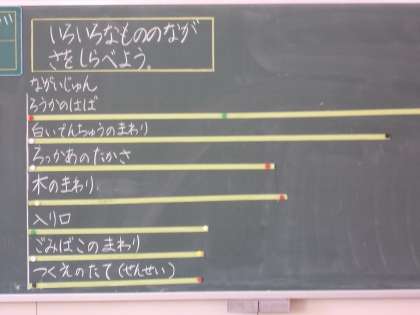 いろいろなもののなが
さをしらべよう。
ながいじゅん
ろうかのはば
白いでんちゅうのまわり
ろっかあのたかさ
木のまわり
入り口
ごみばこのまわり
つくえのたて(せんせい)